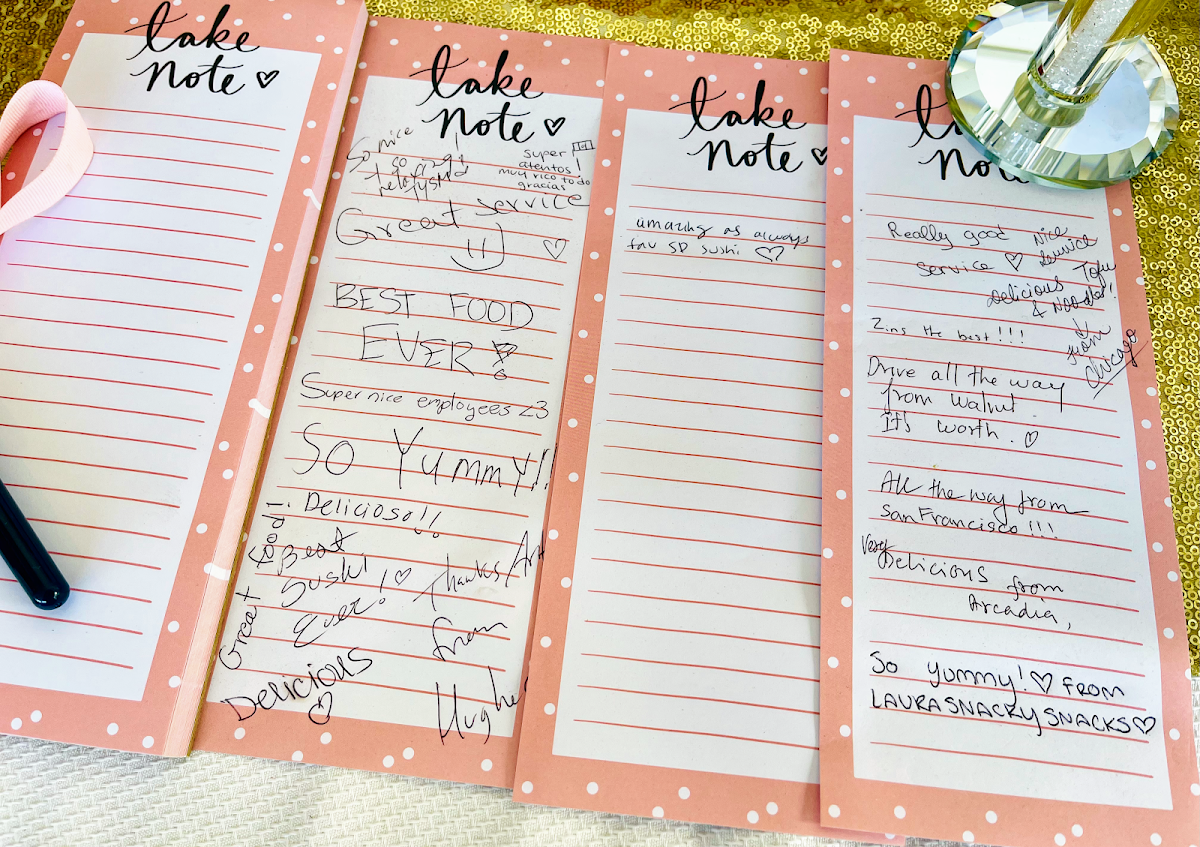 take
note
take
note
So nice
super
atentos!
muy rico todo
gracias
Great service
BEST FOOD
EVER!
Super nice employees <3
SO YUMMY!!
Delicioso!!
Best
Sushi
Ever!
Great food!
Thanks/Art
from
Hughe
Delicious
take
note
amazing as always
fav SD sushi
note
Really good
service
Nice
Service
Delicious Tofu
& Noodles!
from
Chicago
Zins the best!!!
Drive all the way
from walnut
It's worth.
All the way from
San Francisco!!!
Very
Delicious
from
Arcadia,
So yummy! FROM
LAURASNACKYSNACKS